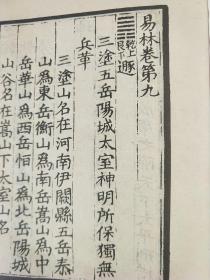 易林卷第九
乾上
艮下
遯
三塗五岳陽城太室神明所保獨無
兵革
三塗山名在河南伊闕縣五岳泰
山為東岳衡山為南岳嵩山為中
岳華山為西岳恒山為北岳陽城
山谷名在嵩山下太室山名